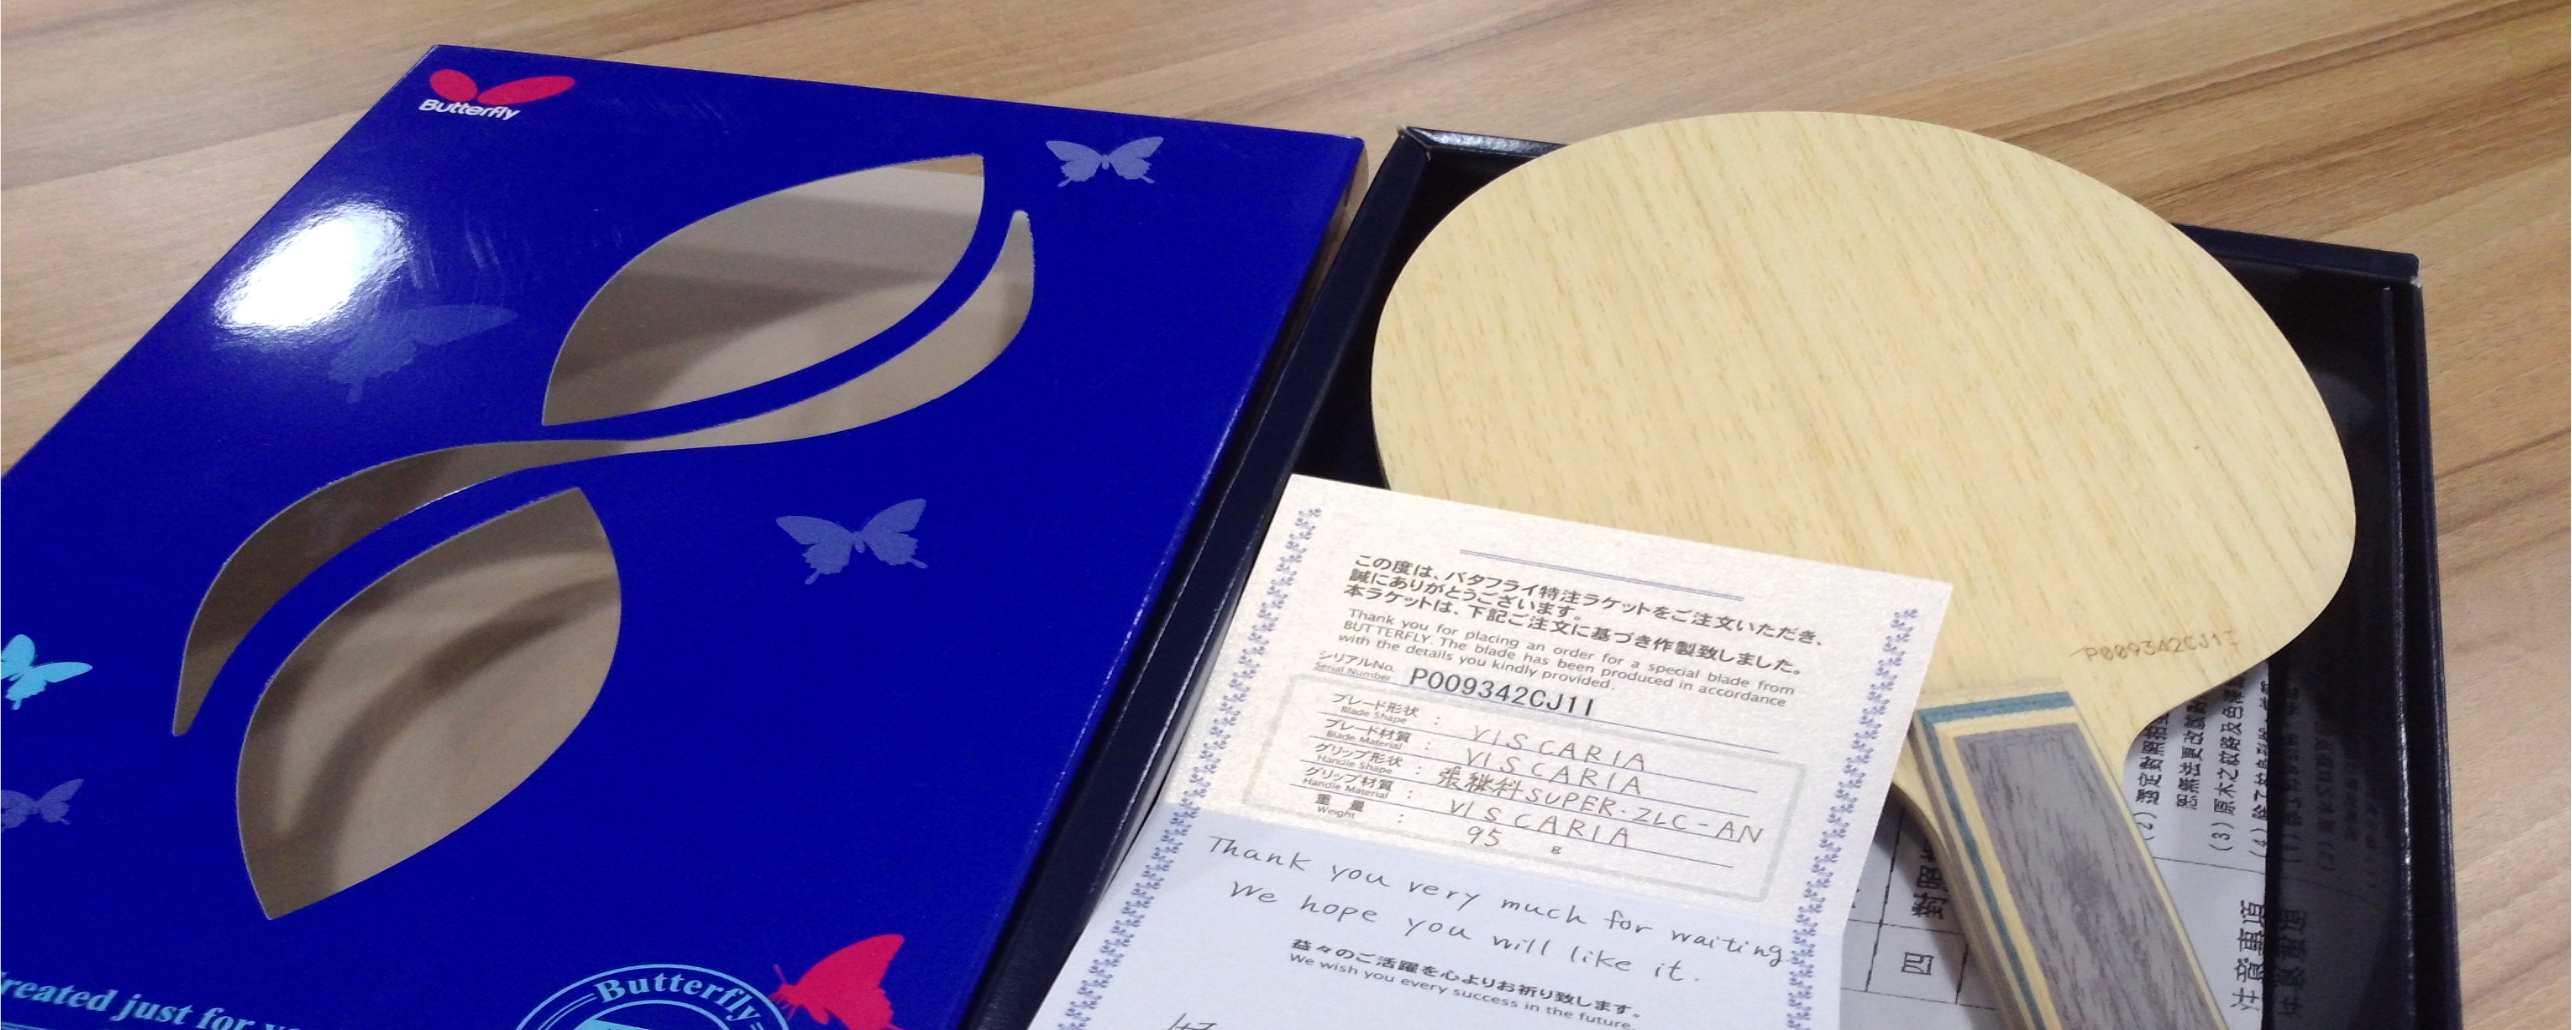 Butterfly
reated just for
Butterfly
この度は、バタフライ特注ラケットをご注文いただき、
誠にありがとうございます。
本ラケットは、下記ご注文に基づき作製致しました。
Thank you for placing an order for a special blade from
BUTTERFLY. The blade has been produced in accordance
with the details you kindly provided.
シリアルNo.
Serial Number P009342CJ1I
ブレード形状
Blade Shape : VISCARIA
ブレード材質
Blade Material : VISCARIA
グリップ形状
Handle Shape : 張継科SUPER・ZLC-AN
グリップ材質
Handle Material : VISCARIA
重量
Weight : 95 g
Thank you very much for waiting.
We hope you will like it.
益々のご活躍を心よりお祈り致します。
We wish you every success in the future.
P009342CJ1I
(2) 選定對照
(3) 原木之紋路及色澤
四
注意事項